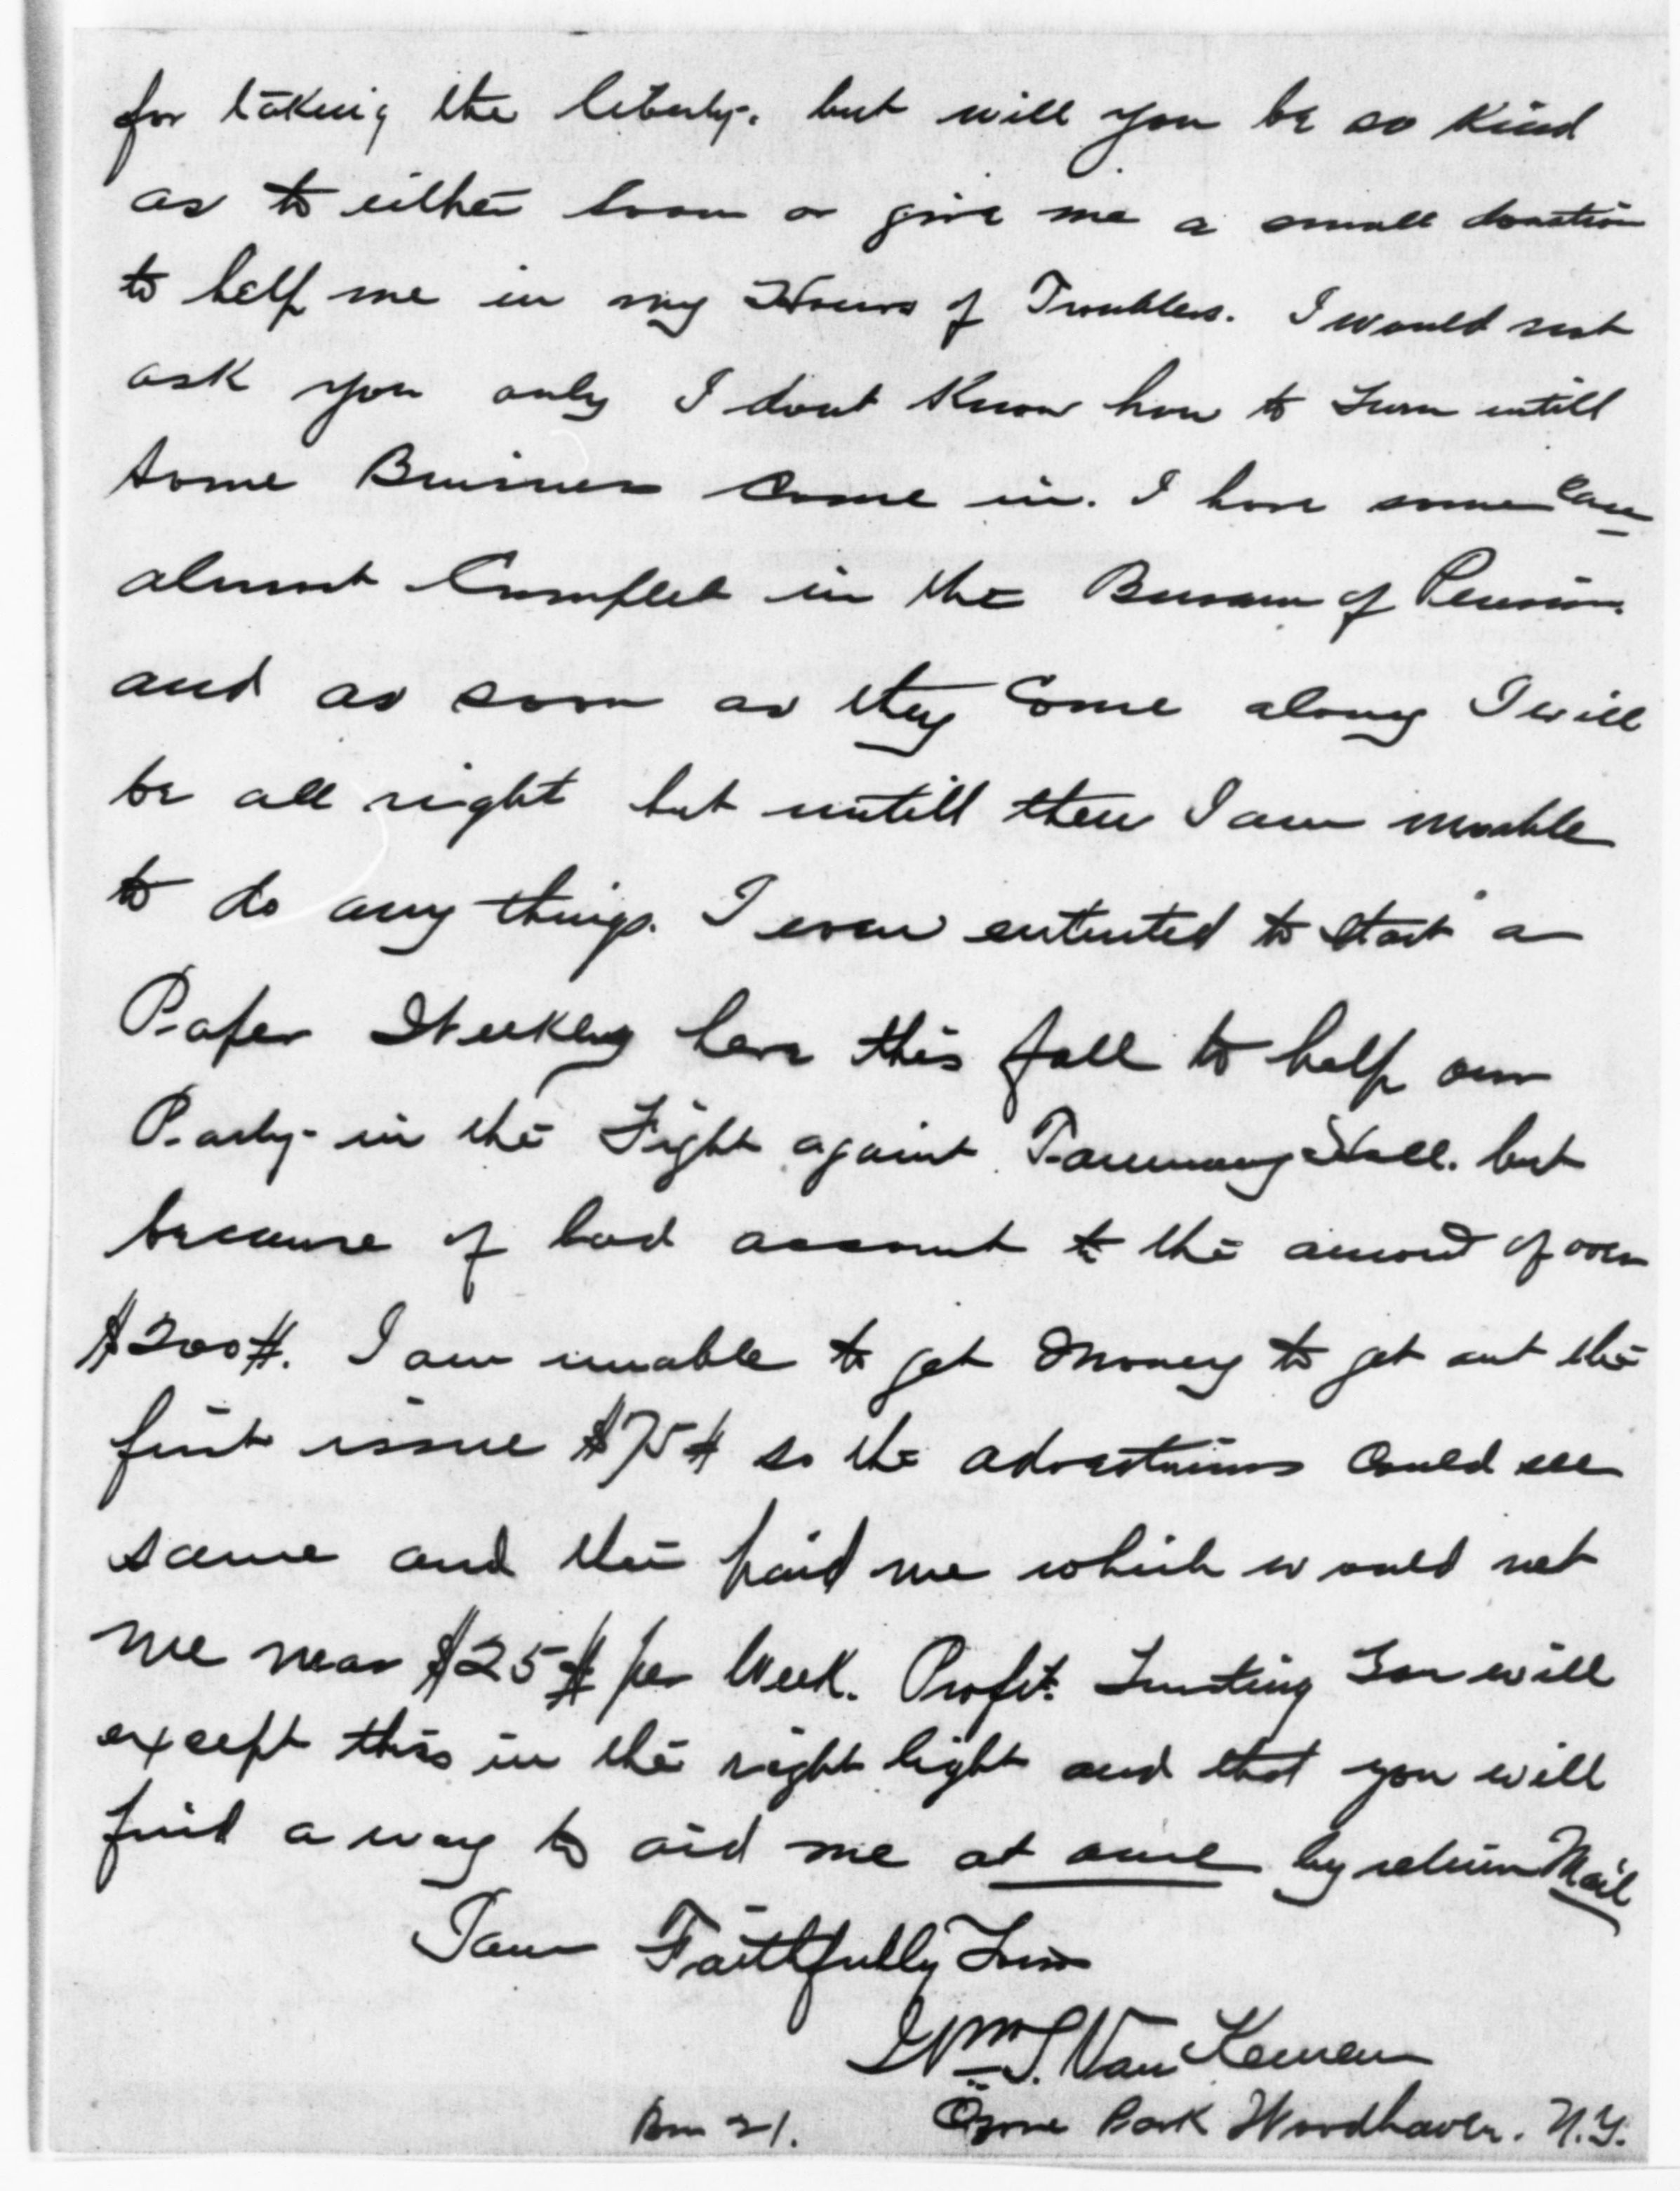 for taking the liberty. but will you be so kind
as to either loan or give me a small donation
to help me in my Hours of Troubles. I would not
ask you only I dont Know how to Turn untill
some Business Come in. I have some Case
almost Complet in the Bureau of Pension.
and as soon as they Come along I will
be all right but untill then I am unable
to do any things. I even entented to start a
Paper Weekley here this fall to help our
Party in the Fight against Tammany Hall. but
because of bad account to the amount of over
$200$. I am unable to get Money to get out the
first issue $75$ so the could see
same and then paid me which would net
me near $25$ per Week. Profit. Trusting You will
except this in the right light and that you will
find a way to aid me at once by return Mail
I am Faithfully Yours
Wm S. Van
Box 21. Ozone Park Woodhaven. N.Y.